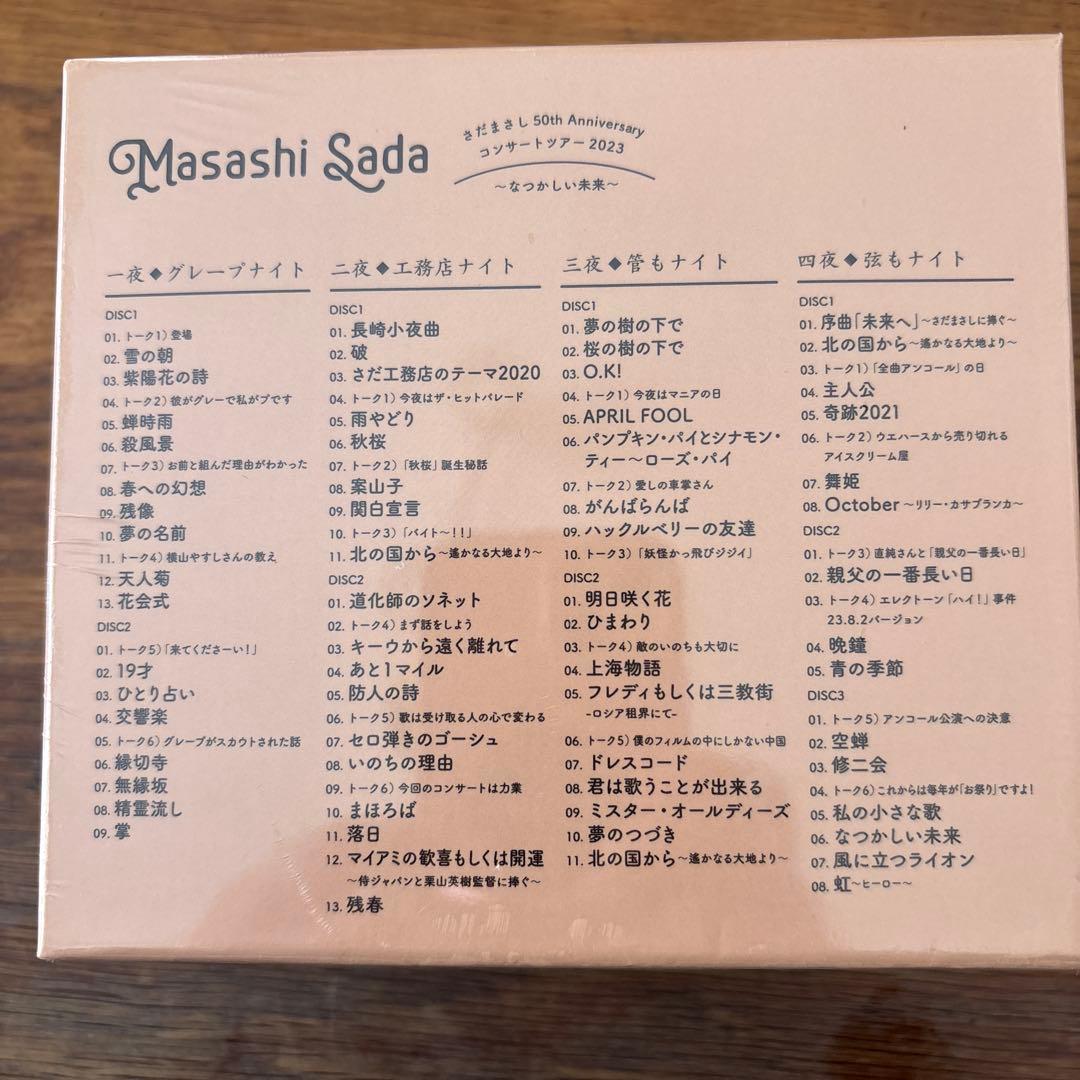 Masashi Sada
さだまさし 50th Anniversary
コンサートツアー2023
〜なつかしい未来〜
一夜◆グレープナイト
DISC1
01. トーク1）登場
02. 雪の朝
03. 紫陽花の詩
04. トーク2）彼がグレーで私がプです
05. 蝉時雨
06. 殺風景
07. トーク3）お前と組んだ理由がわかった
08. 春への幻想
09. 残像
10. 夢の名前
11. トーク4）横山やすしさんの教え
12. 天人菊
13. 花会式
DISC2
01. トーク5）「来てくださーい！」
02. 19才
03. ひとり占い
04. 交響楽
05. トーク6）グレープがスカウトされた話
06. 縁切寺
07. 無縁坂
08. 精霊流し
09. 掌
二夜◆工務店ナイト
DISC1
01. 長崎小夜曲
02. 破
03. さだ工務店のテーマ2020
04. トーク1）今夜はザ・ヒットパレード
05. 雨やどり
06. 秋桜
07. トーク2）「秋桜」誕生秘話
08. 案山子
09. 関白宣言
10. トーク3）「バイト〜！！」
11. 北の国から〜遙かなる大地より〜
DISC2
01. 道化師のソネット
02. トーク4）まず話をしよう
03. キーウから遠く離れて
04. あと1マイル
05. 防人の詩
06. トーク5）歌は受け取る人の心で変わる
07. セロ弾きのゴーシュ
08. いのちの理由
09. トーク6）今回のコンサートは力業
10. まほろば
11. 落日
12. マイアミの歓喜もしくは開運
〜侍ジャパンと栗山英樹監督に捧ぐ〜
13. 残春
三夜◆管もナイト
DISC1
01. 夢の樹の下で
02. 桜の樹の下で
03. O.K!
04. トーク1）今夜はマニアの日
05. APRIL FOOL
06. パンプキン・パイとシナモン・
ティー〜ローズ・パイ
07. トーク2）愛しの車掌さん
08. がんばらんば
09. ハックルベリーの友達
10. トーク3）「妖怪かっ飛びジジイ」
DISC2
01. 明日咲く花
02. ひまわり
03. トーク4）敵のいのちも大切に
04. 上海物語
05. フレディもしくは三教街
-ロシア租界にて-
06. トーク5）僕のフィルムの中にしかない中国
07. ドレスコード
08. 君は歌うことが出来る
09. ミスター・オールディーズ
10. 夢のつづき
11. 北の国から〜遙かなる大地より〜
四夜◆弦もナイト
DISC1
01. 序曲「未来へ」〜さだまさしに捧ぐ〜
02. 北の国から〜遙かなる大地より〜
03. トーク1）「全曲アンコール」の日
04. 主人公
05. 奇跡2021
06. トーク2）ウエハースから売り切れる
アイスクリーム屋
07. 舞姫
08. October 〜リリー・カサブランカ〜
DISC2
01. トーク3）直純さんと「親父の一番長い日」
02. 親父の一番長い日
03. トーク4）エレクトーン「ハイ！」事件
23.8.2バージョン
04. 晩鐘
05. 青の季節
DISC3
01. トーク5）アンコール公演への決意
02. 空蝉
03. 修二会
04. トーク6）これからは毎年が「お祭り」ですよ！
05. 私の小さな歌
06. なつかしい未来
07. 風に立つライオン
08. 虹〜ヒーロー〜